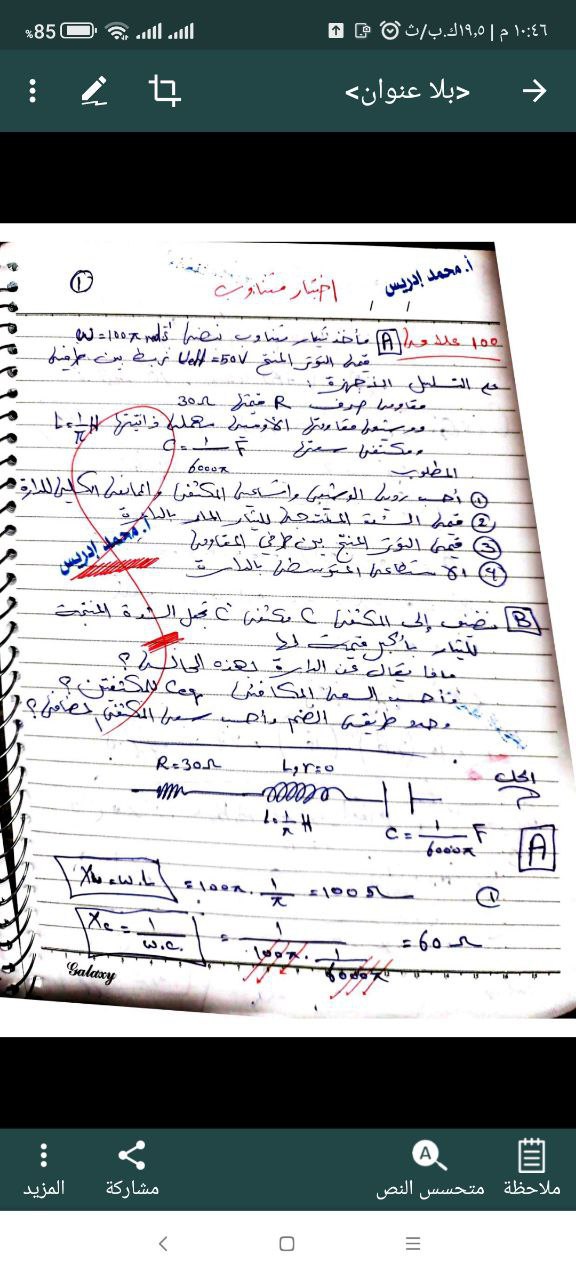 ١٠:٤٦ م | ١٩,٥ك.ب/ث
%85
<بلا عنوان>
أ.محمد إدريس
اختبار متناوب
①
100 علامة
A مأخذ تيار متناوب نبضه ω=100π rad/s
قيمة التوتر المنتج Ueff=50V نربط بين طرفيه
على التسلسل الأجهزة:
مقاومة صرف R قيمتها 30Ω
ووشيعة مقاومتها الأومية مهملة ذاتيتها L=1/π H
ومكثفة سعتها C=1/6000π F
المطلوب
① أحسب ردية الوشيعة واتساعية المكثفة والممانعة الكلية للدارة
② قيمة الشدة المنتجة للتيار المار بالدارة
③ قيمة التوتر المنتج بين طرفي المقاومة
④ الاستطاعة المتوسطة بالدارة
أ.محمد إدريس
B نضيف إلى المكثفة C مكثفة C' تجعل الشدة المنتجة
للتيار بأكبر قيمة لها
ماذا يقال عن الدارة بهذه الحالة؟
وأحسب السعة المكافئة Ceq للمكثفتين؟
وحدد طريقة الضم وأحسب سعة المكثفة المضافة؟
الحل
R=30Ω L,r=0
L=1/π H C=1/6000π F
A
① XL=ω.L =100π.1/π =100Ω
Xc=1/ω.c. =1/100π.1/6000π =60Ω
Galaxy
ملاحظة
متحسس النص
مشاركة
المزيد